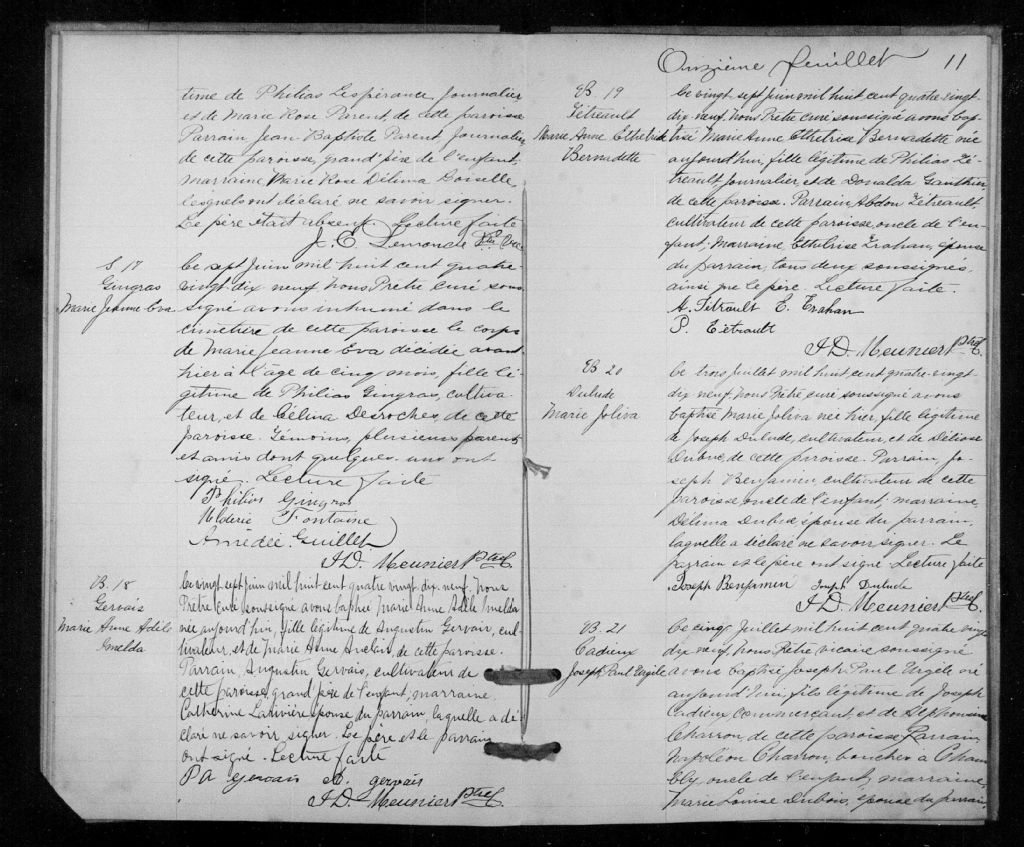 time de Philias Lespérance journalier
et de Marie Rose Parent, de cette paroisse
Parrain Jean Baptiste Parent journalier
de cette paroisse, grand'père de l'enfant,
marraine Marie Rose Délima Loiselle,
lesquels ont déclaré ne savoir signer.
Le père était absent. Lecture faite
J. E. Lemonde Ptre Vic.
S. 17
Gingras
Marie Jeanne Eva
Le sept Juin mil huit cent quatre-
vingt-dix neuf, nous, Prêtre curé sous-
signé avons inhumé dans le
cimetière de cette paroisse le corps
de Marie Jeanne Eva décédée avant
hier à l'âge de cinq mois, fille lé-
gitime de Philias Gingras, cultiva-
teur, et de Célina Desroches, de cette
paroisse. Témoins, plusieurs parents
et amis dont quelques-uns ont
signé. Lecture faite
Philias Gingras
Uldéric Fontaine
Amédée Guillet
J. D. Meunier Ptre
B. 18
Gervais
Marie Anne Adèle
Imelda
Le vingt sept Juin mil huit cent quatre vingt dix neuf, nous
Prêtre Curé soussigné avons baptisé Marie Anne Adèle Imelda
née aujourd'hui, fille légitime de Augustin Gervais, cul-
tivateur, et de Marie Anne Anclais, de cette paroisse.
Parrain, Augustin Gervais, cultivateur de
cette paroisse, grand père de l'enfant, marraine
Catherine Larivière épouse du parrain, laquelle a dé-
claré ne savoir signer. Le père et le parrain
ont signé. Lecture faite
P A Gervais A. gervais
J. D. Meunier Ptre
Onzième feuillet 11
B 19
Tétreault
Marie Anne Ethelride
Bernadette
Le vingt sept Juin mil huit cent quatre-vingt-
dix neuf, Nous Prêtre curé soussigné avons bap-
tisé Marie Anne Ethelrise Bernadette née
aujourd'hui, fille légitime de Philias Té-
treault, journalier, et de Donalda Gauthier,
de cette paroisse. Parrain Abdon Tétreault,
cultivateur de cette paroisse, oncle de l'en-
fant; Marraine, Ethelrise Trahan, épouse
du parrain, tous deux soussignés,
ainsi que le père. Lecture faite.
A. Tétrault E. Trahan
P. Tétrault
J. D. Meunier Ptre
B 20
Dulude
Marie Joliva
Le trois juillet mil huit cent quatre-vingt-
dix neuf, Nous Prêtre curé soussigné avons
baptisé Marie Joliva née hier, fille légitime
de Joseph Dulude, cultivateur, et de
Dubuc, de cette paroisse. Parrain, Jo-
seph Benjamin, cultivateur de cette
paroisse, oncle de l'enfant; marraine,
Délima Dubuc, épouse du parrain,
laquelle a déclaré ne savoir signer. Le
parrain et le père ont signé. Lecture faite
Joseph Benjamin Joseph Dulude
J. D. Meunier Ptre
B. 21
Cadieux
Joseph Paul Urgèle
Le cinq Juillet mil huit cent quatre vingt
dix neuf, nous, Prêtre vicaire soussigné
avons baptisé Joseph Paul Urgèle né
aujourd'hui, fils légitime de Joseph
Cadieux commerçant, et de Alphonsine
Charron, de cette paroisse. Parrain
Napoléon Charron, boucher à Cham
bly, oncle de l'enfant, marraine,
Marie Louise Dubois, épouse du parrain,